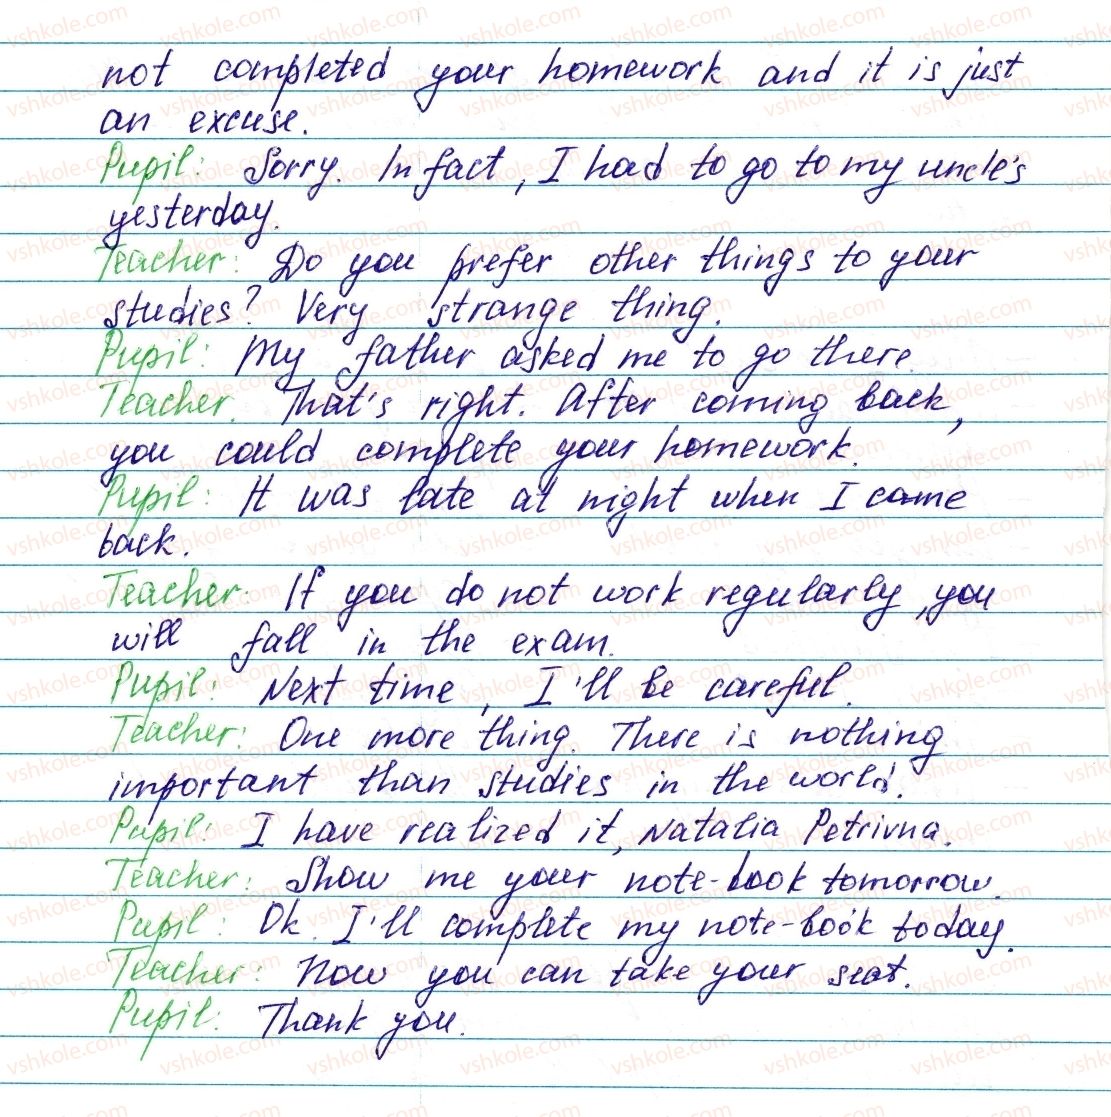 not completed your homework and it is just
an excuse.
Pupil: Sorry. In fact, I had to go to my uncle's
yesterday.
Teacher: Do you prefer other things to your
studies? Very strange thing.
Pupil: My father asked me to go there.
Teacher. That's right. After coming back,
you could complete your homework.
Pupil: It was late at night when I came
back.
Teacher: If you do not work regularly, you
will fall in the exam.
Pupil: Next time, I'll be careful.
Teacher: One more thing. There is nothing
important than studies in the world.
Pupil: I have realized it, Natalia Petrivna.
Teacher: Show me your note-book tomorrow.
Pupil: Ok. I'll complete my note-book today.
Teacher: Now you can take your seat.
Pupil: Thank you.
vshkole.com